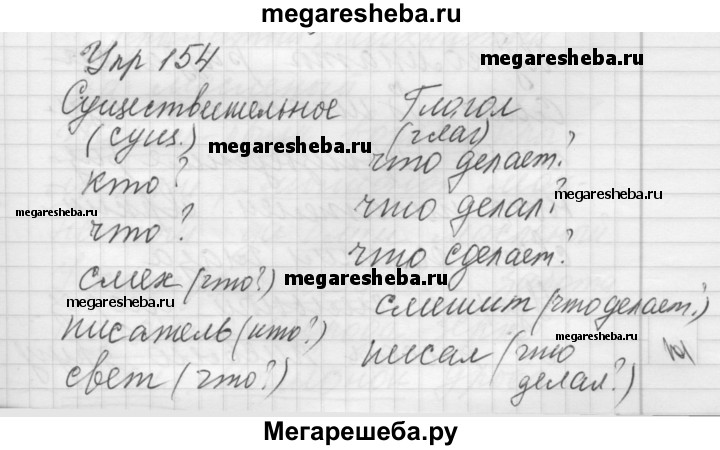 megaresheba.ru
Упр 154
megaresheba.ru
Существительное Глагол
(сущ.) (глаг)
megaresheba.ru
кто? что делает?
megaresheba.ru
megaresheba.ru
что? что делал?
что сделает?
смех (что?) megaresheba.ru
megaresheba.ru
смешит (что делает?)
писатель (кто?) megaresheba.ru
megaresheba.ru
свет (что?) писал (что
делал?)
Мегарешеба.ру